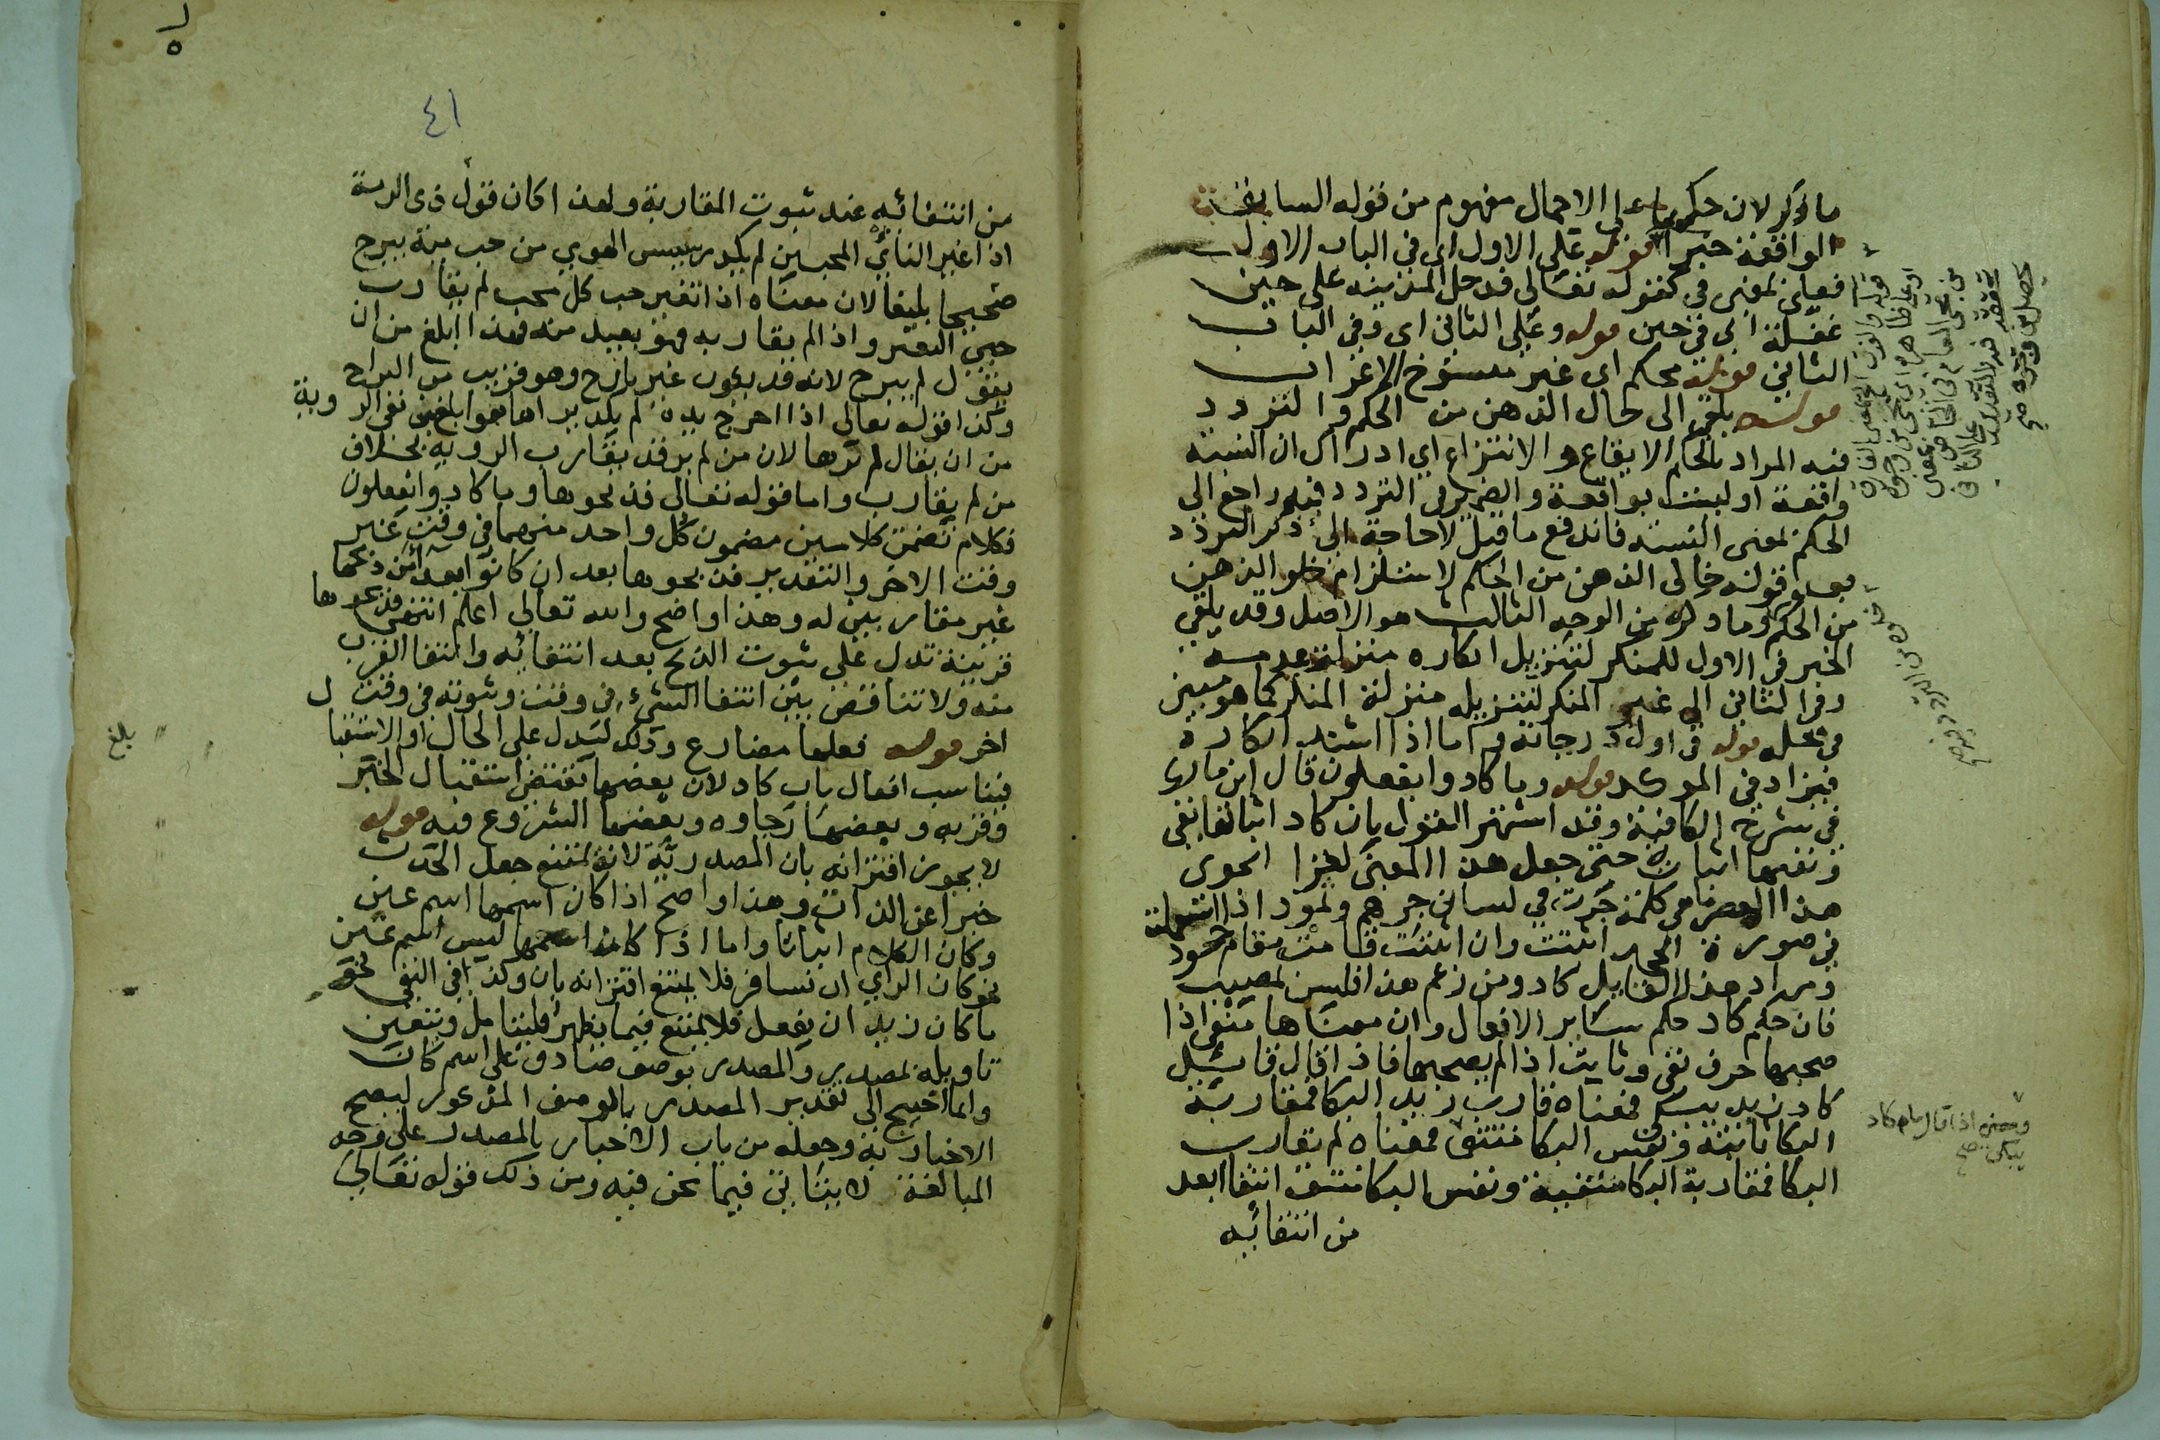 ما ذكر لان حكمها على الاجمال مفهوم من قوله السابق
الواقعة خبرا قوله على الاول اى فى الباب الاول
فعلى بمعنى فى كقوله تعالى فدخل المدينه على حين
غفلة اى فى حين قوله وعلى الثانى اى وفى الباب
الثانى قوله محكم اى غير منسوخ الاعراب
قوله يلقى الى خال الذهن من الحكم والتردد
فيه المراد بالحكم الايقاع والانتزاع اى ادراك ان النسبة
واقعة او ليست بواقعة والضمير فى التردد فيه راجع الى
الحكم بمعنى النسبة فاندفع ما قيل لا حاجة الى ذكر التردد
بعد قوله خالى الذهن من الحكم لاستلزام خلو الذهن
من الحكم وما ذكره من الوجه الثالث هو الاصل وقد يلقى
الخبر فى الاول للمنكر لتنزيل انكاره منزلة عدمه
وفى الثانى الى غير المنكر لتنزيله منزلة المنكر كما هو مبين
فى محله قوله فى اول درجاته واما اذا اشتد انكاره
فيزاد فى الموكد قوله وما كادوا يفعلون قال ابن مالك
فى شرح الكافية وقد اشتهر القول بان كاد اثباتها نفى
ونفيها اثبات حتى جعل هذا المعنى لغزا انحوى
هذا العصر ما هى كلمة جرت فى لسانى جرهم وثمود اذا استعملت
فى صورة الجحد اثبتت وان اثبتت قامت مقام جحود
ومراد هذا القايل كاد ومن زعم هذا فليس بمصيب
فان حكم كاد حكم ساير الافعال وان معناها منفى اذا
صحبها حرف نفى وثابت اذا لم يصحبها فاذا قال قائل
كاد زيد يبكى فمعناه قارب زيد البكا فمقاربة
البكا ثابتة ونفس البكا منتفى فمعناه لم يقارب
البكا فمقاربة البكا منتفية ونفس البكا منتف انتفا ابعد
من انتفائه
ومعنى اذا قال لم كاد
يبكى صح
٤١
من انتفائه عند ثبوت المقاربة ولهذا كان قول ذى الرمة
اذا غير الناى المحبين لم يكد رسيس الهوى من حب مية يبرح
صحيحا بليغا لان معناه اذا تغير حب كل محب لم يقارب
حبى التغير واذا لم يقاربه فهو بعيد منه فهذا ابلغ من ان
يقول لم يبرح لانه قد يكون غير بارح وهو قريب من البراح
وكذا قوله تعالى اذا اخرج يده لم يكد يراها هو ابلغ من نفى الروية
من ان يقال لم يرها لان من لم ير قد يقارب الروية بخلاف
من لم يقارب واما قوله تعالى فذبحوها وما كادوا يفعلون
فكلام تضمن كلامين مضمون كل واحد منهما فى وقت غير
وقت الاخر والتقدير فذبحوها بعد ان كانوا بعدا من ذبحها
غير مقاربين له وهذا واضح والله تعالى اعلم انتهى فذبحوها
قرينة تدل على ثبوت الذبح بعد انتفائه وانتفا القرب
منه ولا تناقض بين انتفا الشىء فى وقت وثبوته فى وقت
اخر قوله فعلها مضارع وذلك ليدل على الحال او الاستقبال
فيناسب افعال باب كاد لان بعضها تقتضى استقبال الخبر
وقربه وبعضها رجاوه وبعضها الشروع فيه قوله
لا يجوز اقترانه بان المصدرية لانه يمتنع جعل الحدث
خبرا عن الذات وهذا واضح اذا كان اسمها اسم عين
وكان الكلام اثباتا واما اذا كان اسمها ليس اسم عين
نحو كان الراى ان تسافر فلا يمتنع اقترانه بان وكذا فى النفى نحو
ما كان زيد ان يفعل فلا يمتنع فيما يظهر فليتامل ويتعين
تاويله بمصدر والمصدر بوصف صادق على اسم كان
وانما احتيج الى تقدير المصدر بالوصف المذكور ليصح
الاخبار به وجعله من باب الاخبار بالمصدر على وجه
المبالغة لا يتاتى فيما نحن فيه ومن ذلك قوله تعالى
بلغ